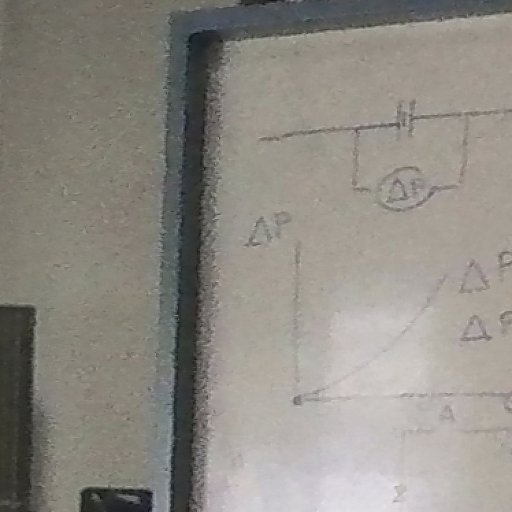 ΔP
ΔP
ΔP
ΔP
A